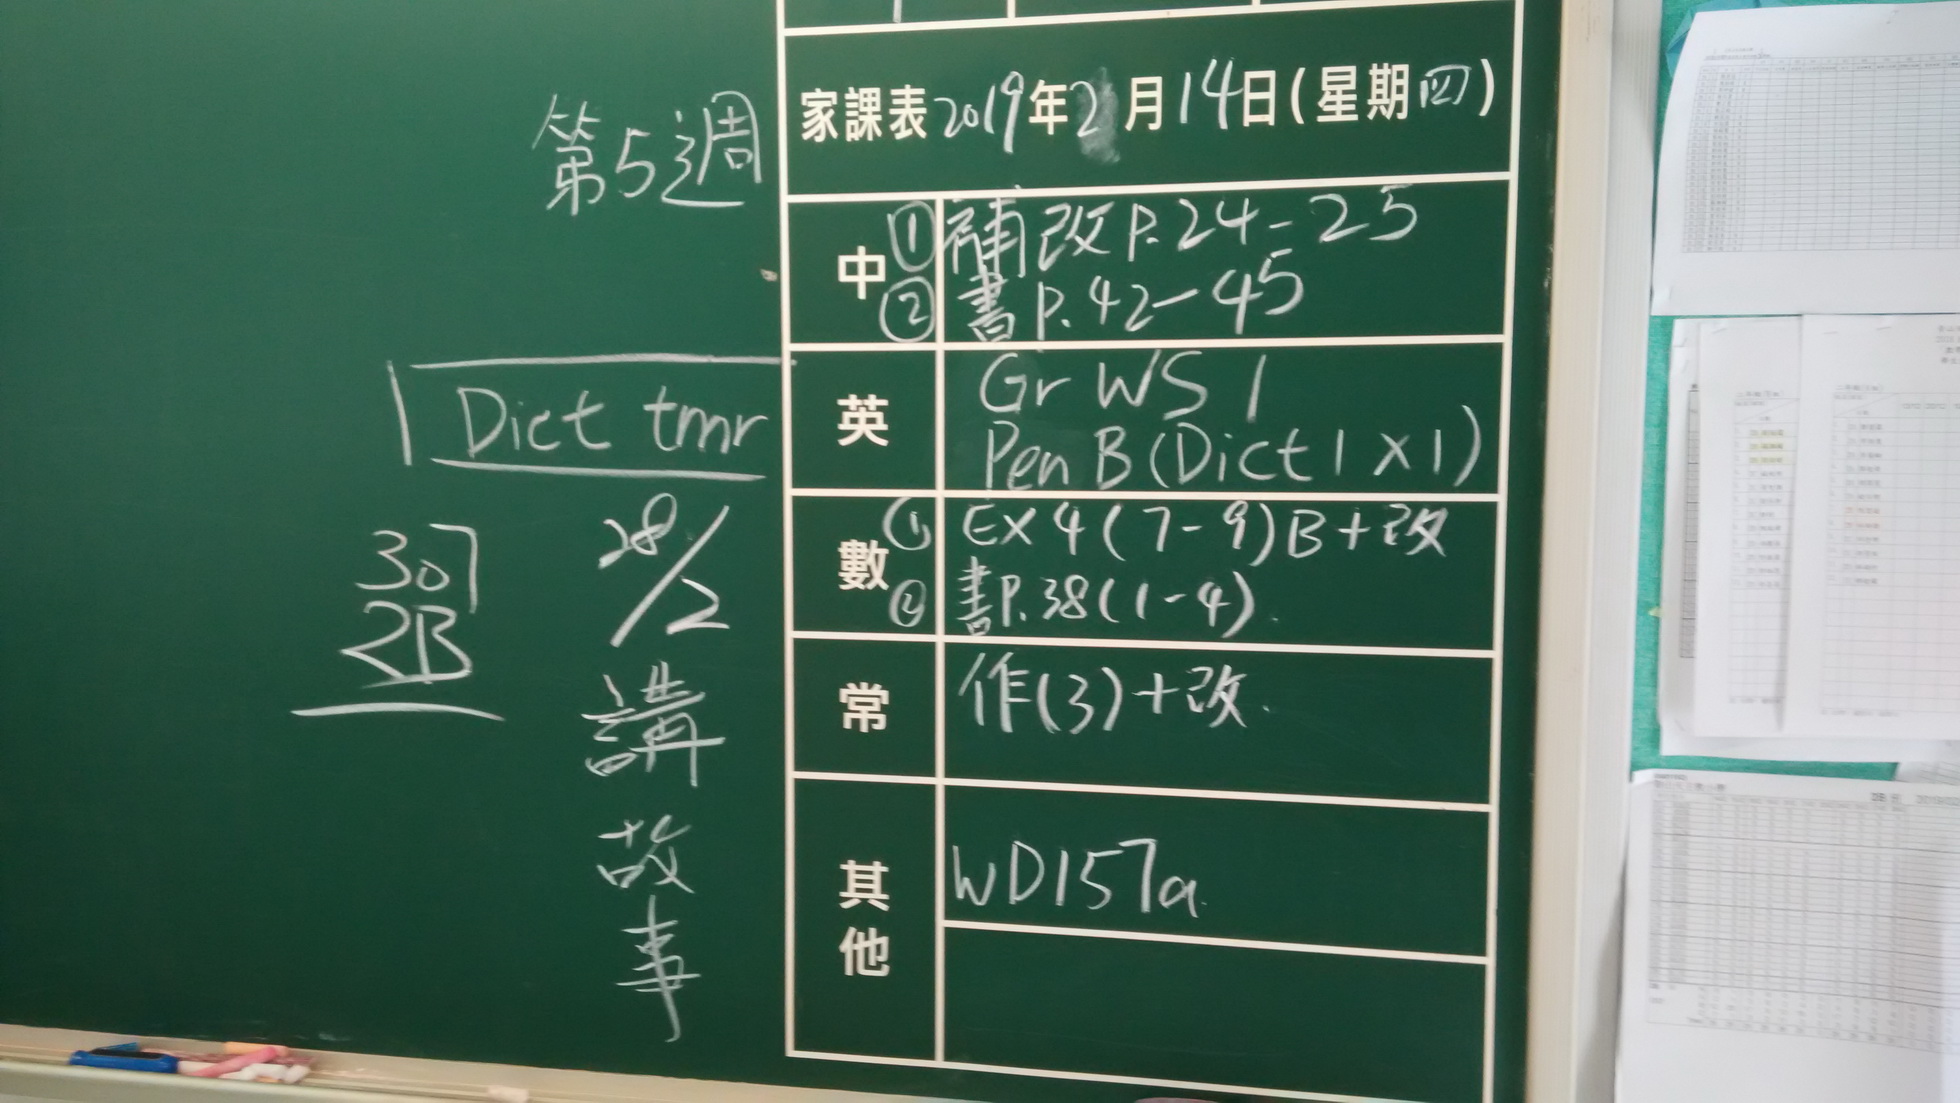 家課表2019年2月14日(星期四)
第5週
中
① 補改P.24-25
② 書P.42-45
英
Gr WS 1
Pen B (Dict 1 x 1)
Dict tmr
數
① EX 4 (7-9)B+改
② 書P.38(1-4).
常
作(3)+改.
其他
WD157a
307
2B
28/2
講故事